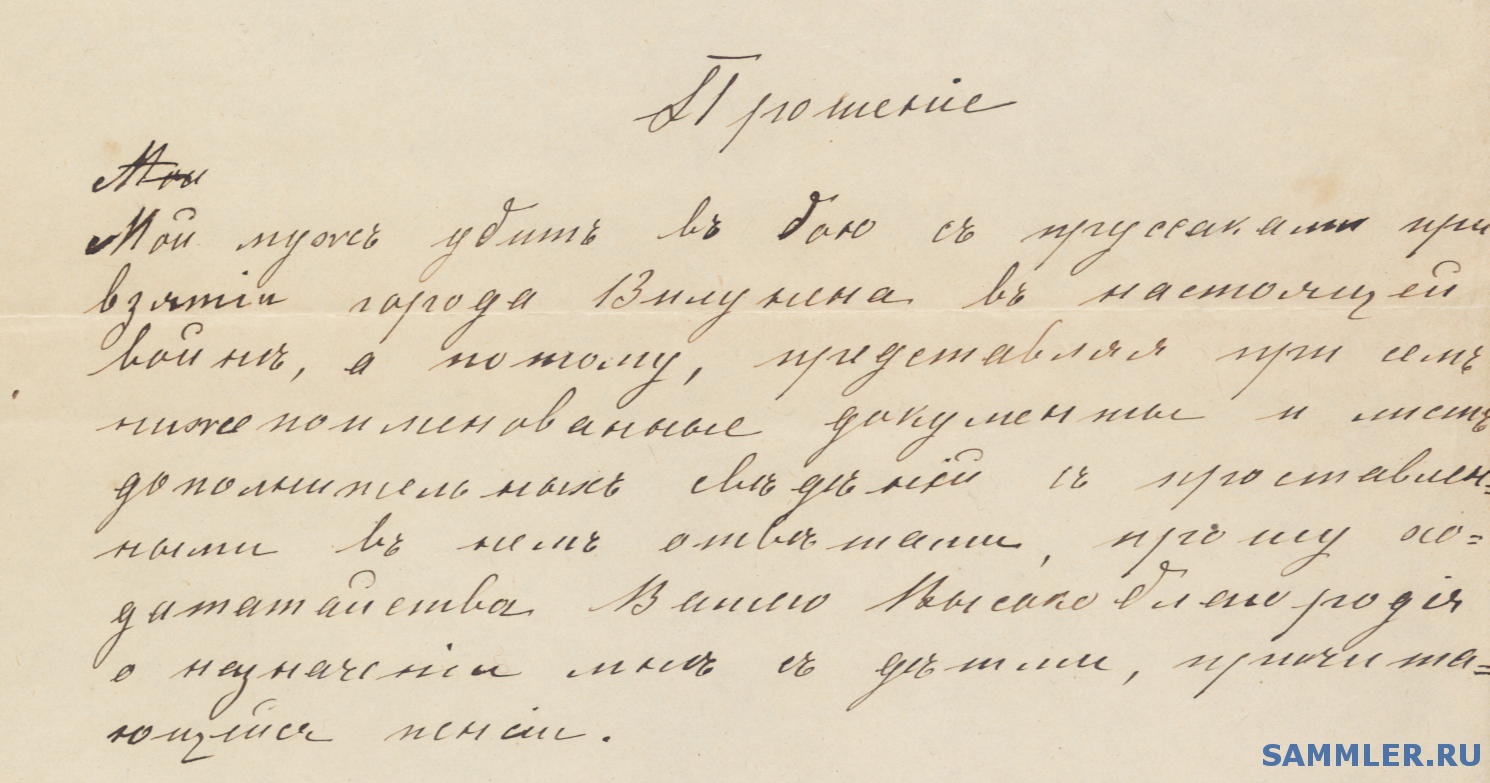 Прошеніе
Мои
Мой мужъ убитъ въ бою съ пруссаками при
взятіи города Вилунена въ настоящей
войнѣ, а потому, представляя при семъ
нижепоименованные документы и листъ
дополнительныхъ свѣдѣній съ проставлен=
ными въ немъ отвѣтами, прошу хо=
датайства Вашего Высокоблагородія
о назначеніи мнѣ съ дѣтьми, причита=
ющейся пенсіи.
SAMMLER.RU